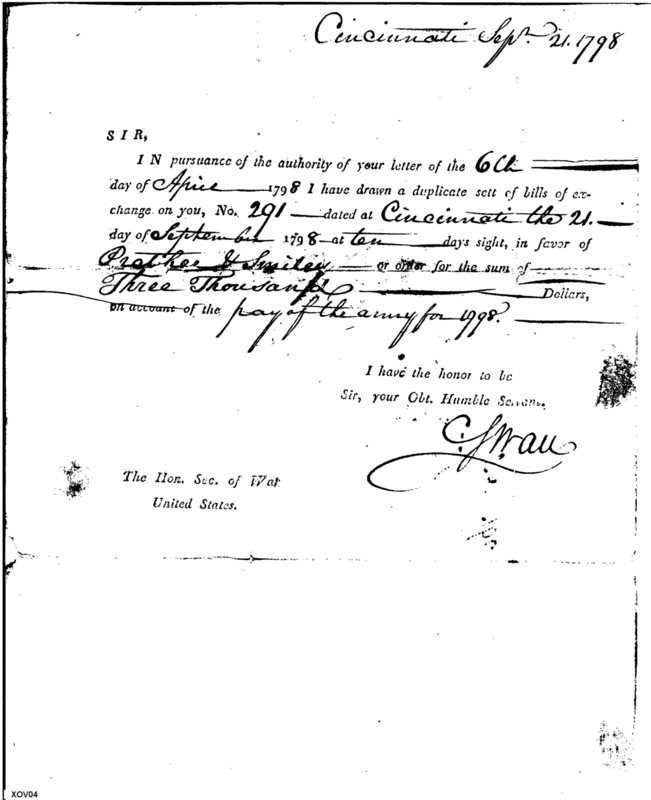 Cincinnati Sepr. 21. 1798
SIR,
IN pursuance of the authority of your letter of the 6th
day of April 1798 I have drawn a duplicate sett of bills of ex-
change on you, No. 291 dated at Cincinnati the 21.
day of September 1798 at ten days sight, in favor of
Prather & Smiley or order for the sum of
Three Thousand Dollars,
on account of the pay of the army for 1798.
I have the honor to be
Sir, your Obt. Humble Servant,
C Swan
The Hon. Sec. of War
United States.
XOV04